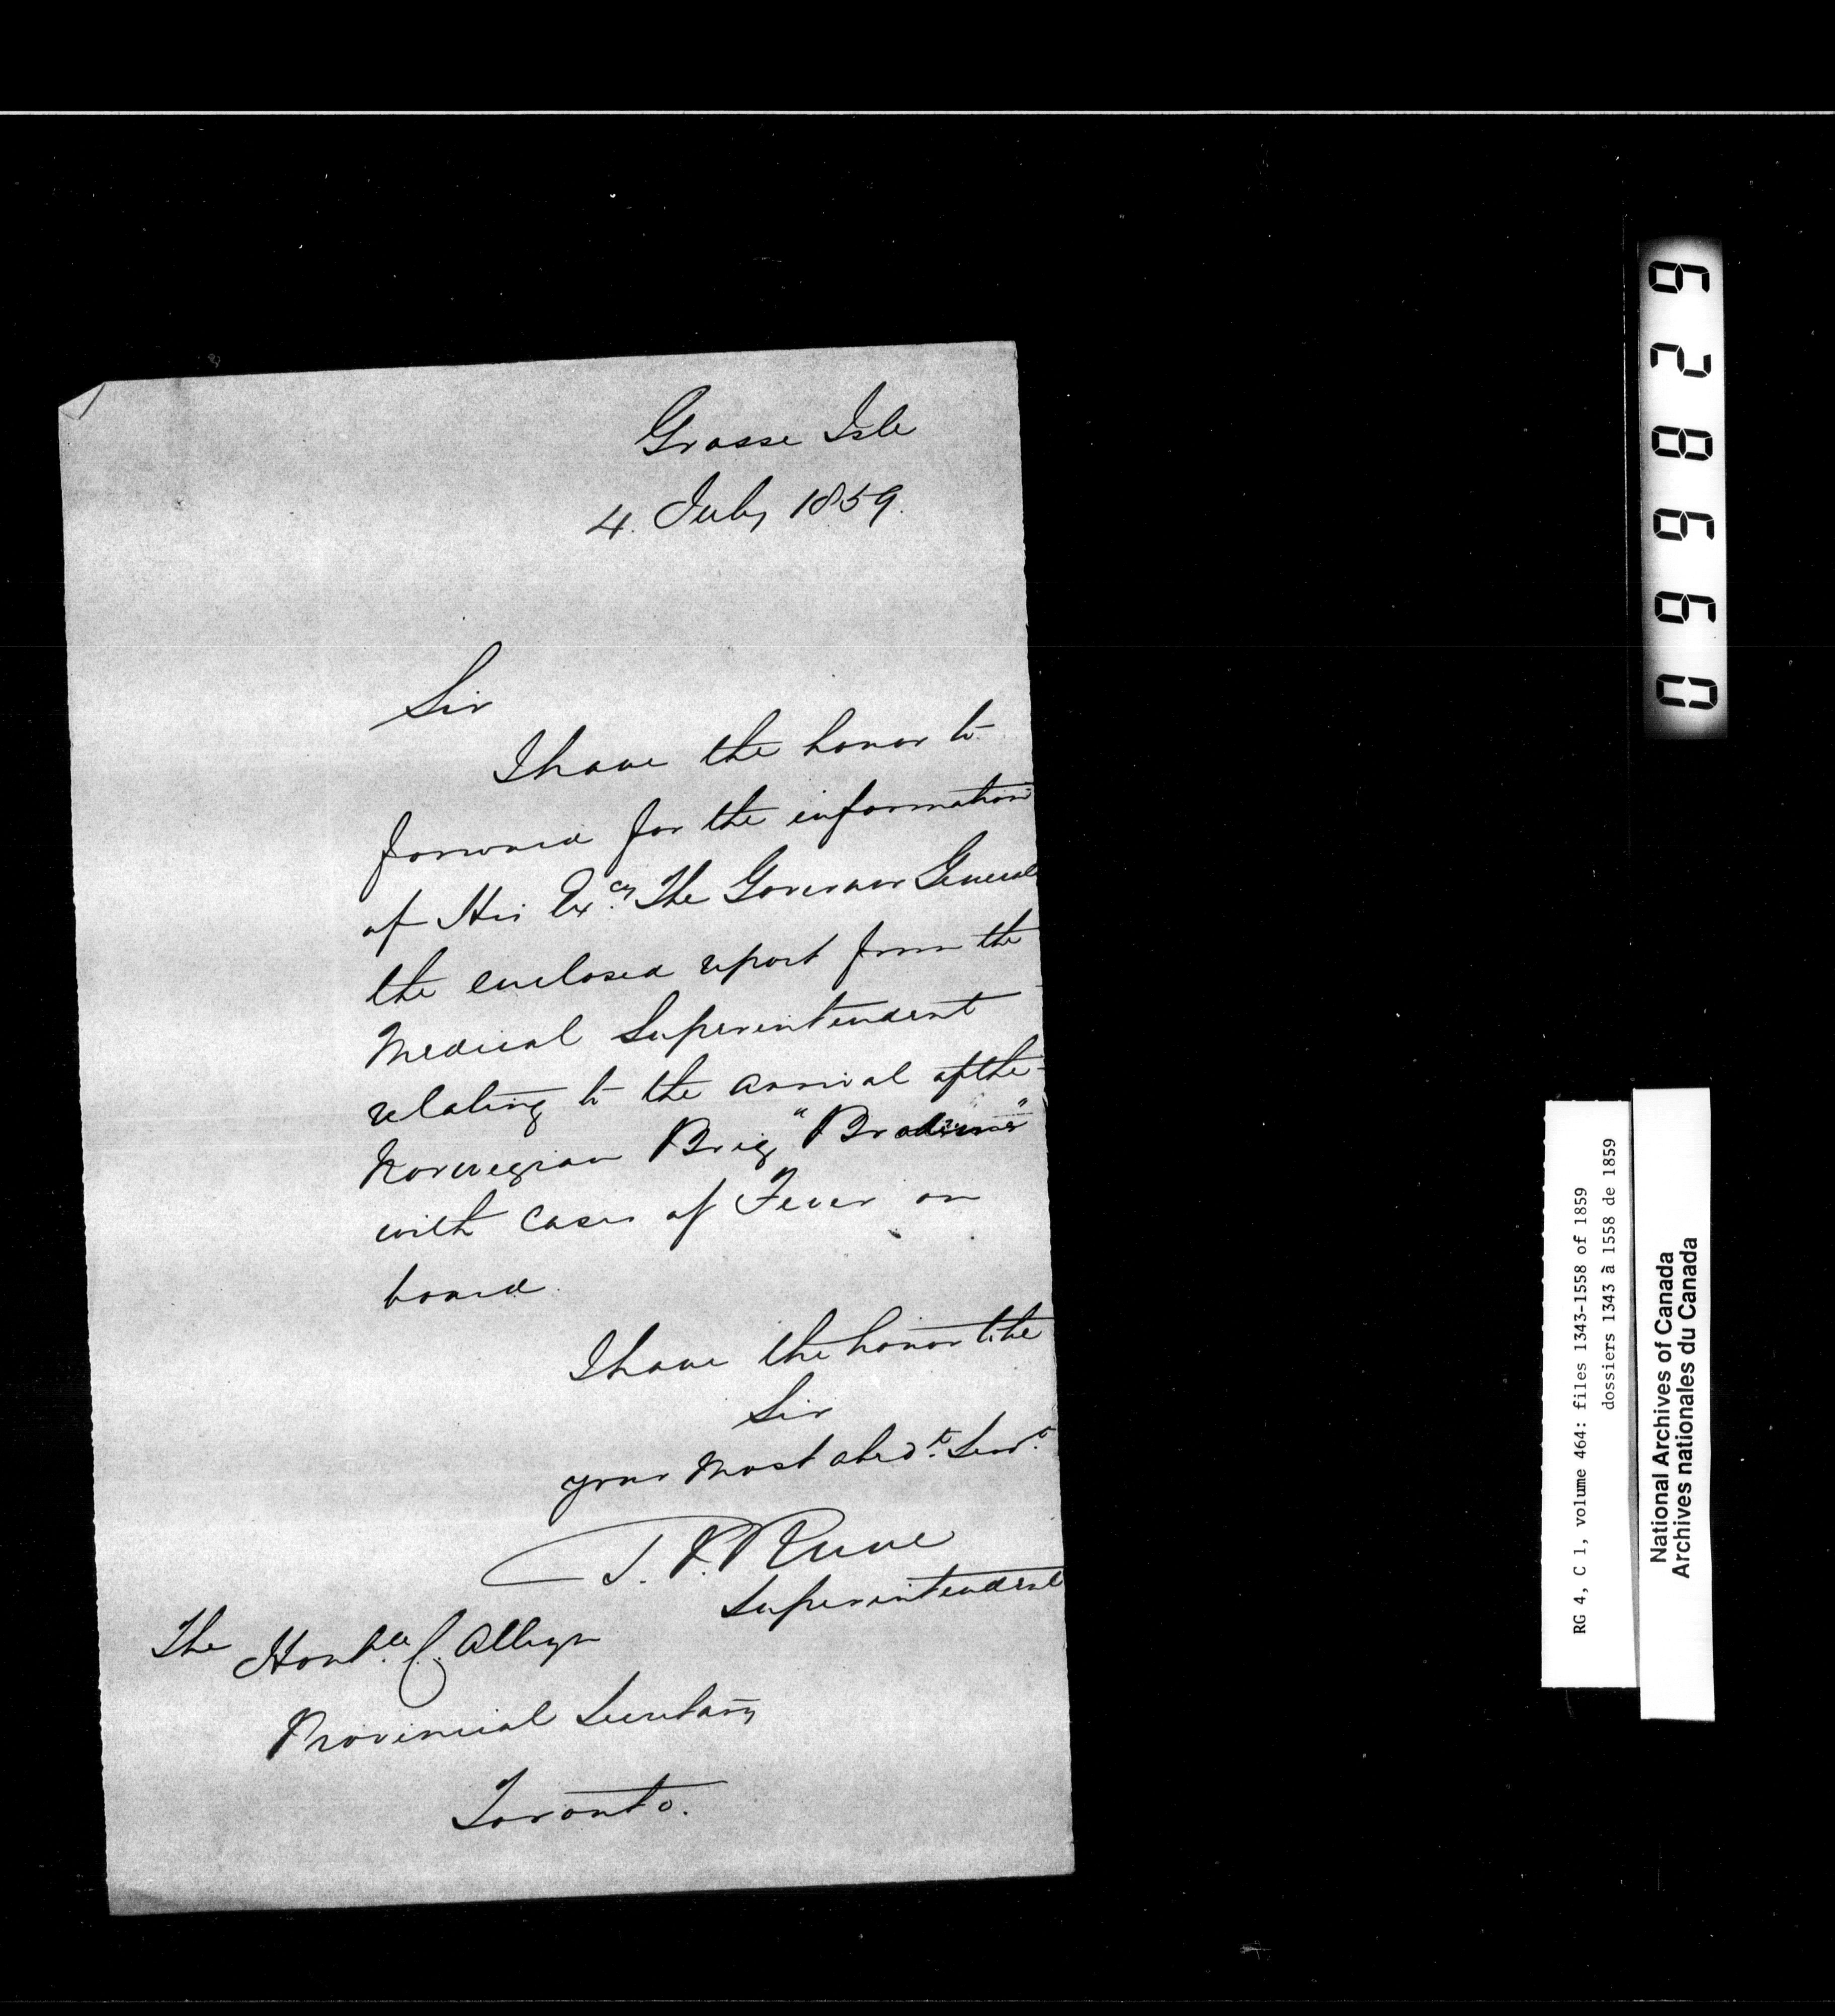 Grosse Isle
4. July 1859.
Sir
I have the honor to
forward for the information
of His Excy. The Governor General
the enclosed report from the
Medical Superintendent
relating to the arrival of the
Norwegian Brig "
with Cases of Fever on
board.
I have the honor to be
Sir
your most obedt. Servt.
Superintendent
The Honble. C. Alleyn
Provincial Secretary
Toronto.
628660
RG 4, C 1, volume 464: files 1343-1558 of 1859
dossiers 1343 à 1558 de 1859
National Archives of Canada
Archives nationales du Canada